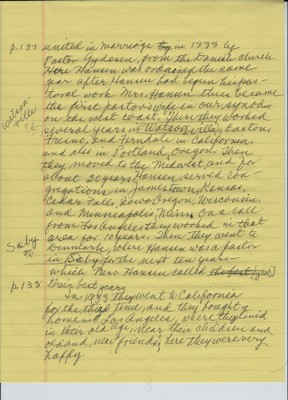 p.137 united in marriage in 1888 by
Pastor Gydesen, from the Danish church
Here Hansen was ordained the same
year after Hansen had begun his pas-
toral work Mrs. Hansen thus became
the first pastor's wife in our synod
on the west coast. Then they worked
Watson
ville
several years in Watsonville, Easton,
Fresno, and Ferndale in California
and also in Portland, Oregon. Then
they moved to the Midwest, and for
about 20 years Hansen served con-
gregations in Jamestown, Kansas,
Cedar Falls, Iowa, Oregon, Wisconsin,
and Minneapolis, Minn. On a call
from Los Angeles they worked in that
area for 10 years. Then they went to
Saby
Denmark, where Hansen was a pastor
in Saby for the next ten years—
which Mrs. Hansen called
p.138 their best years
In 1933 they went to California
for the third time, and they bought a
home in Los Angeles, where they lived
in their old age, near their children and
old and new friends; here they were very
happy